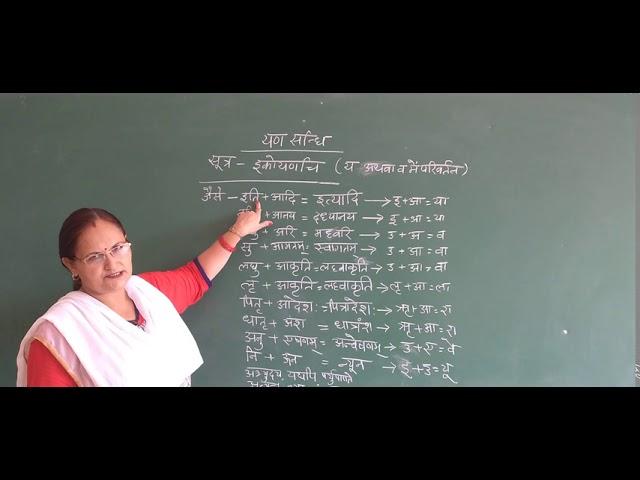 यण सन्धि
सूत्र - इकोयणचि (य अथवा व में परिवर्तन)
जैसे - इति + आदि = इत्यादि → इ + आ = या
+ आनय = दध्यानय → इ + आ = या
+ अरि = मध्वरि → उ + अ = व
सु + आगतम् = स्वागतम् → उ + आ = वा
लघु + आकृति = लघ्वाकृति → उ + आ = वा
लृ + आकृति = लघ्वाकृति → लृ + आ = ला
पितृ + आदेश: = पित्रादेश: → ऋ + आ = रा
धातृ + अंश = धात्रंश → ऋ + आ = रा
अनु + एषणम् = अन्वेषणम् → उ + ए = वे
नि + ऊन = न्यून → इ + उ = यू
यद्यपि